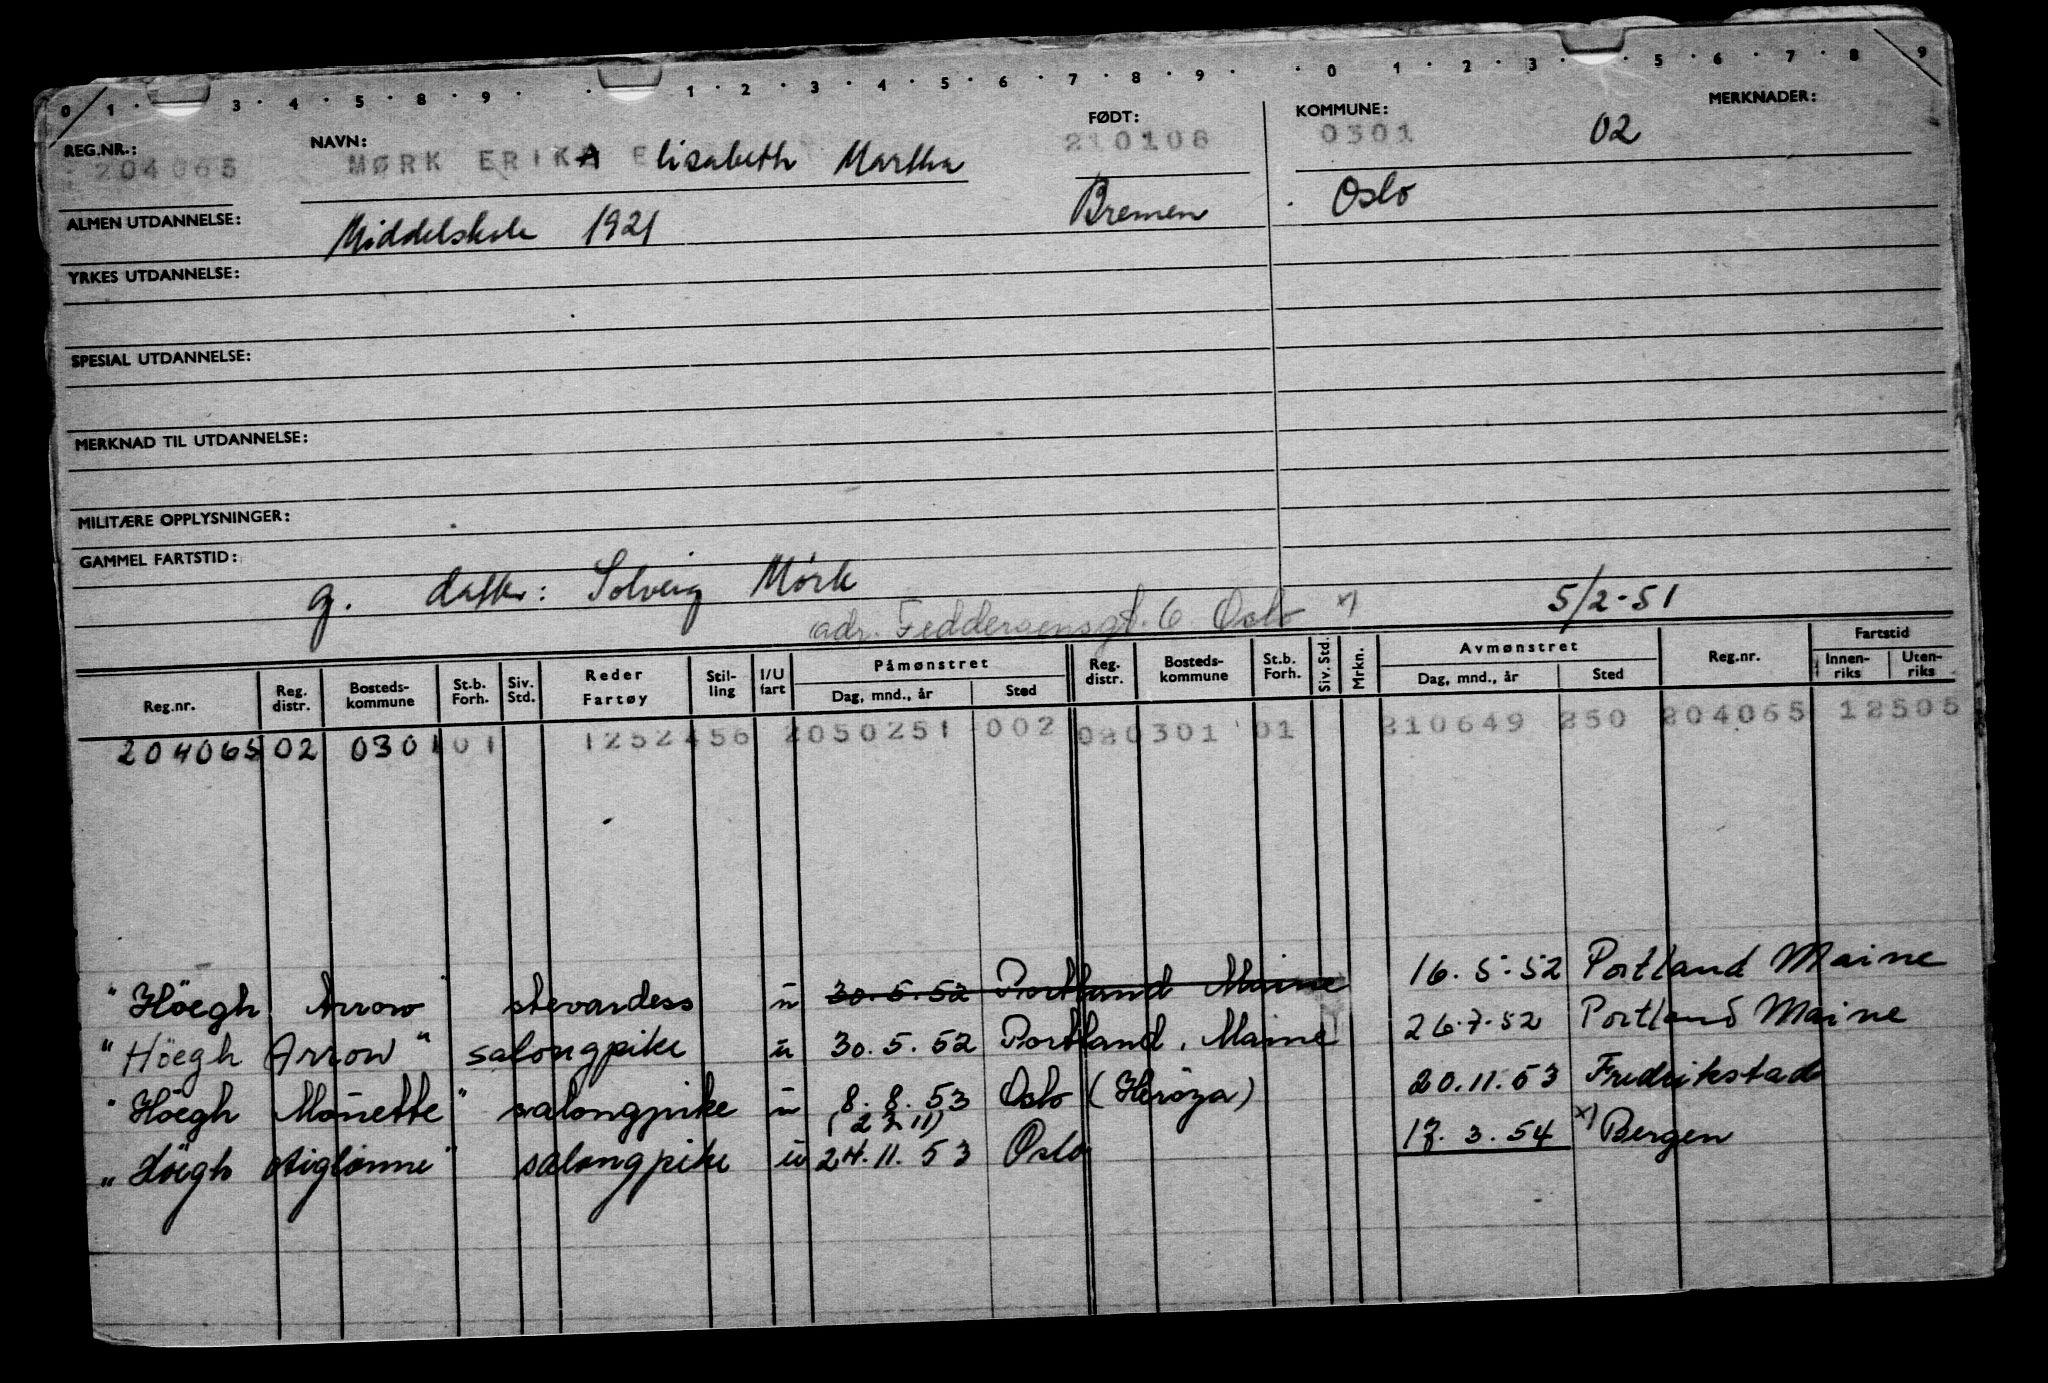 0 1 3 4 5 8 9 1 2 3 4 5 6 7 8 9 0 1 2 3 5 6 7 8 9
REG.NR.: NAVN: FØDT: KOMMUNE: MERKNADER:
204065 MØRK ERIKA Elisabeth Martha 210108 0301 02
ALMEN UTDANNELSE: Middelskole 1921 Bremen Oslo
YRKES UTDANNELSE:
SPESIAL UTDANNELSE:
MERKNAD TIL UTDANNELSE:
MILITÆRE OPPLYSNINGER:
GAMMEL FARTSTID:
g. datter: Solveig Mørk 5/2-51
adr. Feddersensgt. 6. Oslo x)
Reg.nr. Reg. distr. Bosteds-kommune St.b. Forh. Siv. Std. Reder Fartøy Stil-ling I/U fart Påmønstret Dag, mnd., år Sted Reg. distr. Bosteds-kommune St.b. Forh. Siv. Std. Mrkn. Avmønstret Dag, mnd., år Sted Reg.nr. Fartstid Innen-riks Uten-riks
204065 02 0301 01 1252456 2050251 002 020301 01 210649 250 204065 12505
"Höegh Arrow" stevardess u 30.5.52 Portland Maine 16.5.52 Portland Maine
"Höegh Arrow" salongpike u 30.5.52 Portland, Maine 26.7.52 Portland Maine
"Höegh Monette" salongpike u 8.8.53 Oslo (Heröya) 20.11.53 Fredrikstad
(23.11)
"Höegh Aiglonne" salongpike u 24.11.53 Oslo 17.3.54 x) Bergen